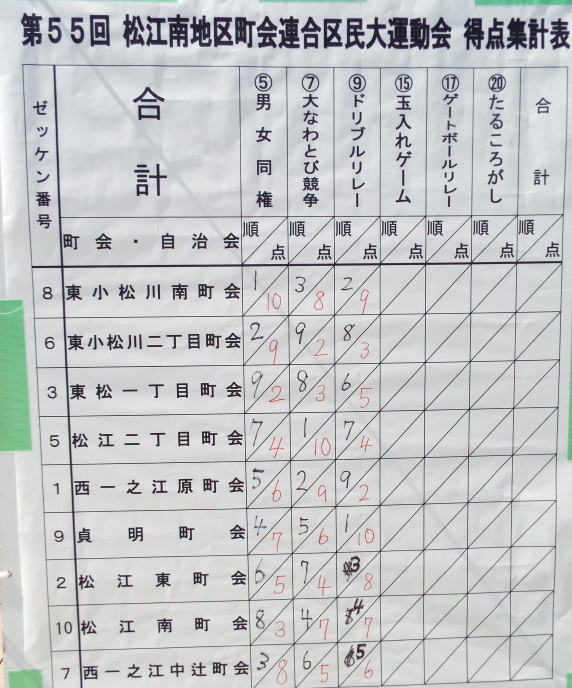 第55回 松江南地区町会連合区民大運動会 得点集計表
ゼッケン番号 合計 ⑤男女同権 ⑦大なわとび競争 ⑨ドリブルリレー ⑮玉入れゲーム ⑰ゲートボールリレー ⑳たるころがし 合計
町会・自治会 順 点 順 点 順 点 順 点 順 点 順 点 順 点
8 東小松川南町会 1 10 3 8 2 9
6 東小松川二丁目町会 2 9 9 2 8 3
3 東松一丁目町会 9 2 8 3 6 5
5 松江二丁目町会 7 4 1 10 7 4
1 西一之江原町会 5 6 2 9 9 2
9 貞明町会 4 7 5 6 1 10
2 松江東町会 6 5 7 4 3 8
10 松江南町会 8 3 4 7 4 7
7 西一之江中辻町会 3 8 6 5 5 6